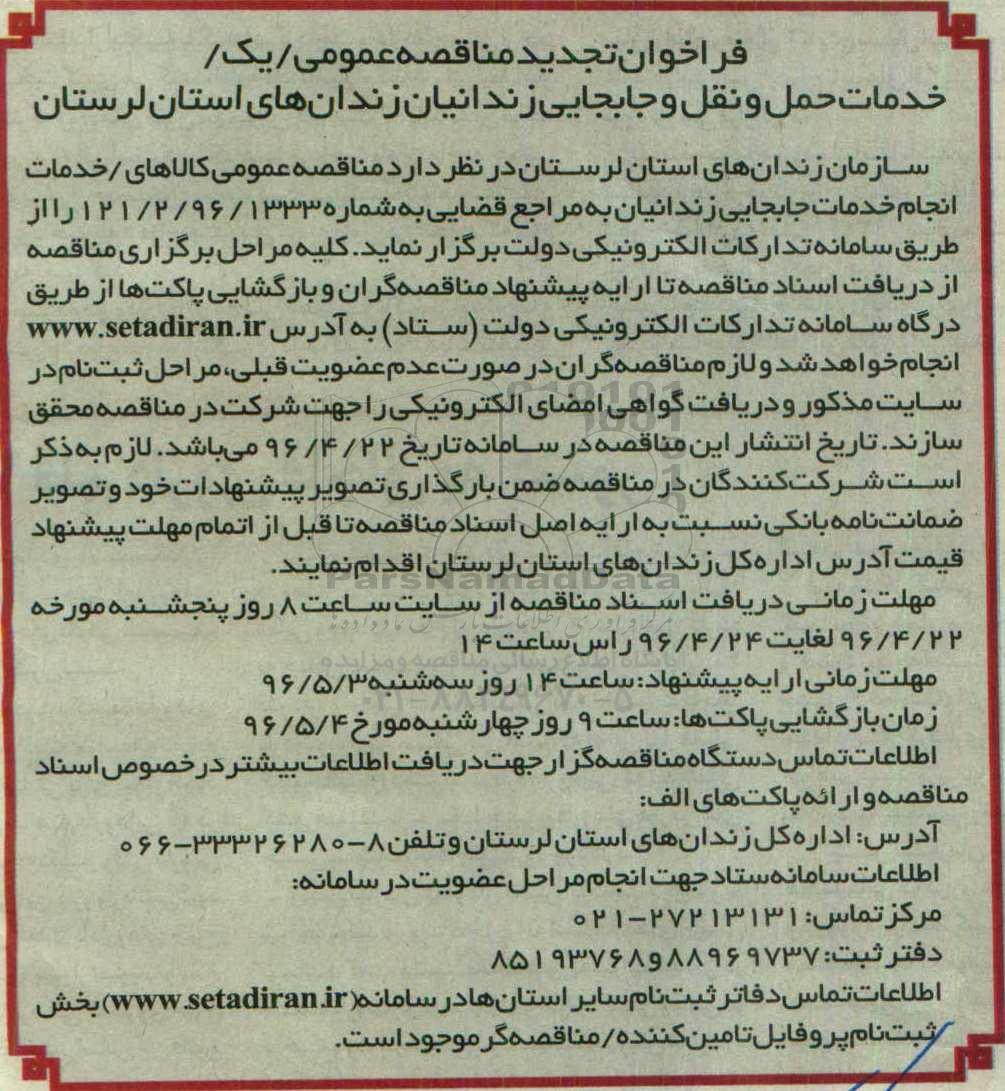 فراخوان تجدید مناقصه عمومی/یک/
خدمات حمل و نقل و جابجایی زندانیان زندان‌های استان لرستان
سازمان زندان‌های استان لرستان در نظر دارد مناقصه عمومی کالاهای /خدمات
انجام خدمات جابجایی زندانیان به مراجع قضایی به شماره ۱۲۱/۲/۹۶/۱۳۳۳ را از
طریق سامانه تدارکات الکترونیکی دولت برگزار نماید. کلیه مراحل برگزاری مناقصه
از دریافت اسناد مناقصه تا ارایه پیشنهاد مناقصه‌گران و بازگشایی پاکت‌ها از طریق
درگاه سامانه تدارکات الکترونیکی دولت (ستاد) به آدرس www.setadiran.ir
انجام خواهد شد و لازم مناقصه‌گران در صورت عدم عضویت قبلی، مراحل ثبت‌نام در
سایت مذکور و دریافت گواهی امضای الکترونیکی را جهت شرکت در مناقصه محقق
سازند. تاریخ انتشار این مناقصه در سامانه تاریخ ۹۶/۴/۲۲ می‌باشد. لازم به ذکر
است شرکت‌کنندگان در مناقصه ضمن بارگذاری تصویر پیشنهادات خود و تصویر
ضمانت‌نامه بانکی نسبت به ارایه اصل اسناد مناقصه تا قبل از اتمام مهلت پیشنهاد
قیمت آدرس اداره کل زندان‌های استان لرستان اقدام نمایند.
ParsNamadData
مهلت زمانی دریافت اسناد مناقصه از سایت ساعت ۸ روز پنجشنبه مورخه
۹۶/۴/۲۲ لغایت ۹۶/۴/۲۴ راس ساعت ۱۴
مهلت زمانی ارایه پیشنهاد: ساعت ۱۴ روز سه‌شنبه ۹۶/۵/۳
زمان بازگشایی پاکت‌ها: ساعت ۹ روز چهارشنبه مورخ ۹۶/۵/۴
اطلاعات تماس دستگاه مناقصه‌گزار جهت دریافت اطلاعات بیشتر در خصوص اسناد
مناقصه و ارائه پاکت‌های الف:
آدرس: اداره کل زندان‌های استان لرستان و تلفن ۸-۳۳۳۲۶۲۸۰-۰۶۶
اطلاعات سامانه ستاد جهت انجام مراحل عضویت در سامانه:
مرکز تماس: ۲۷۲۱۳۱۳۱-۰۲۱
دفتر ثبت: ۸۸۹۶۹۷۳۷ و ۸۵۱۹۳۷۶۸
اطلاعات تماس دفاتر ثبت‌نام سایر استان‌ها در سامانه (www.setadiran.ir) بخش
ثبت‌نام پروفایل تامین‌کننده/مناقصه‌گر موجود است.